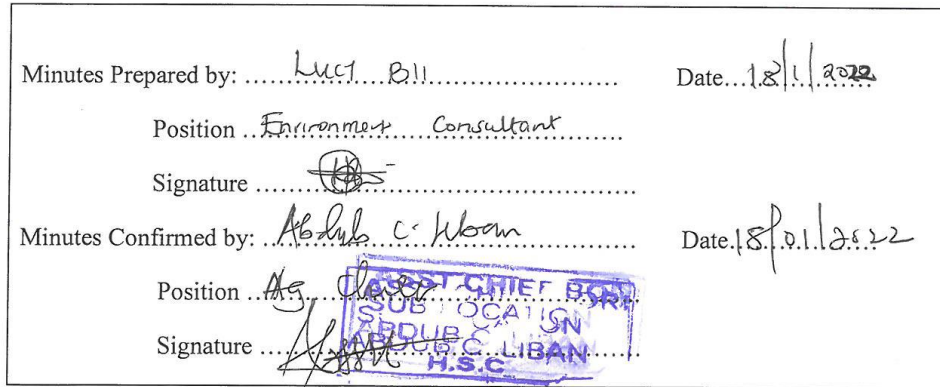 Minutes Prepared by: Lucy Bii Date 18/1/2022
Position Environment Consultant
Signature
Minutes Confirmed by: Abdub C. Liban Date 18/01/2022
Position Ag. Chief
ASST CHIEF
SUB LOCATION
Signature
ABDUB C. LIBAN
H.S.C